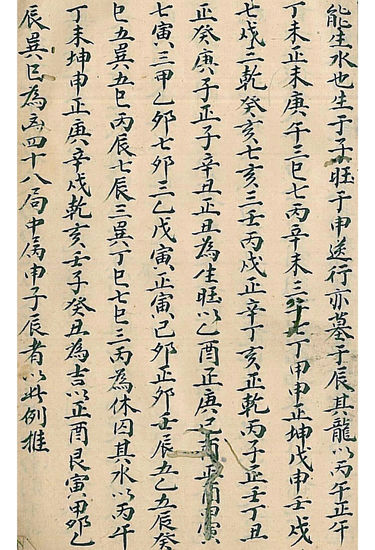 能生水也生于子旺于申送行亦墓于辰其龍以丙午正午
丁未正未庚午三巳七丙辛未三午七丁甲申正坤戊申壬戌
七戌三乾癸亥七亥三壬丙戌正辛丁亥正乾丙子正壬丁丑
正癸庚子正子辛丑正丑為生旺以乙酉正庚己酉正酉甲寅
七寅三甲乙卯七卯三乙戊寅正寅己卯正卯壬辰五乙五辰癸
巳五巽五巳丙辰七辰三巽丁巳七巳三丙為休囚其水以丙午
丁未坤申正庚辛戌乾亥壬子癸丑為吉以正酉艮寅甲卯乙
辰巽巳為凶四十八局中属申子辰者以此例推